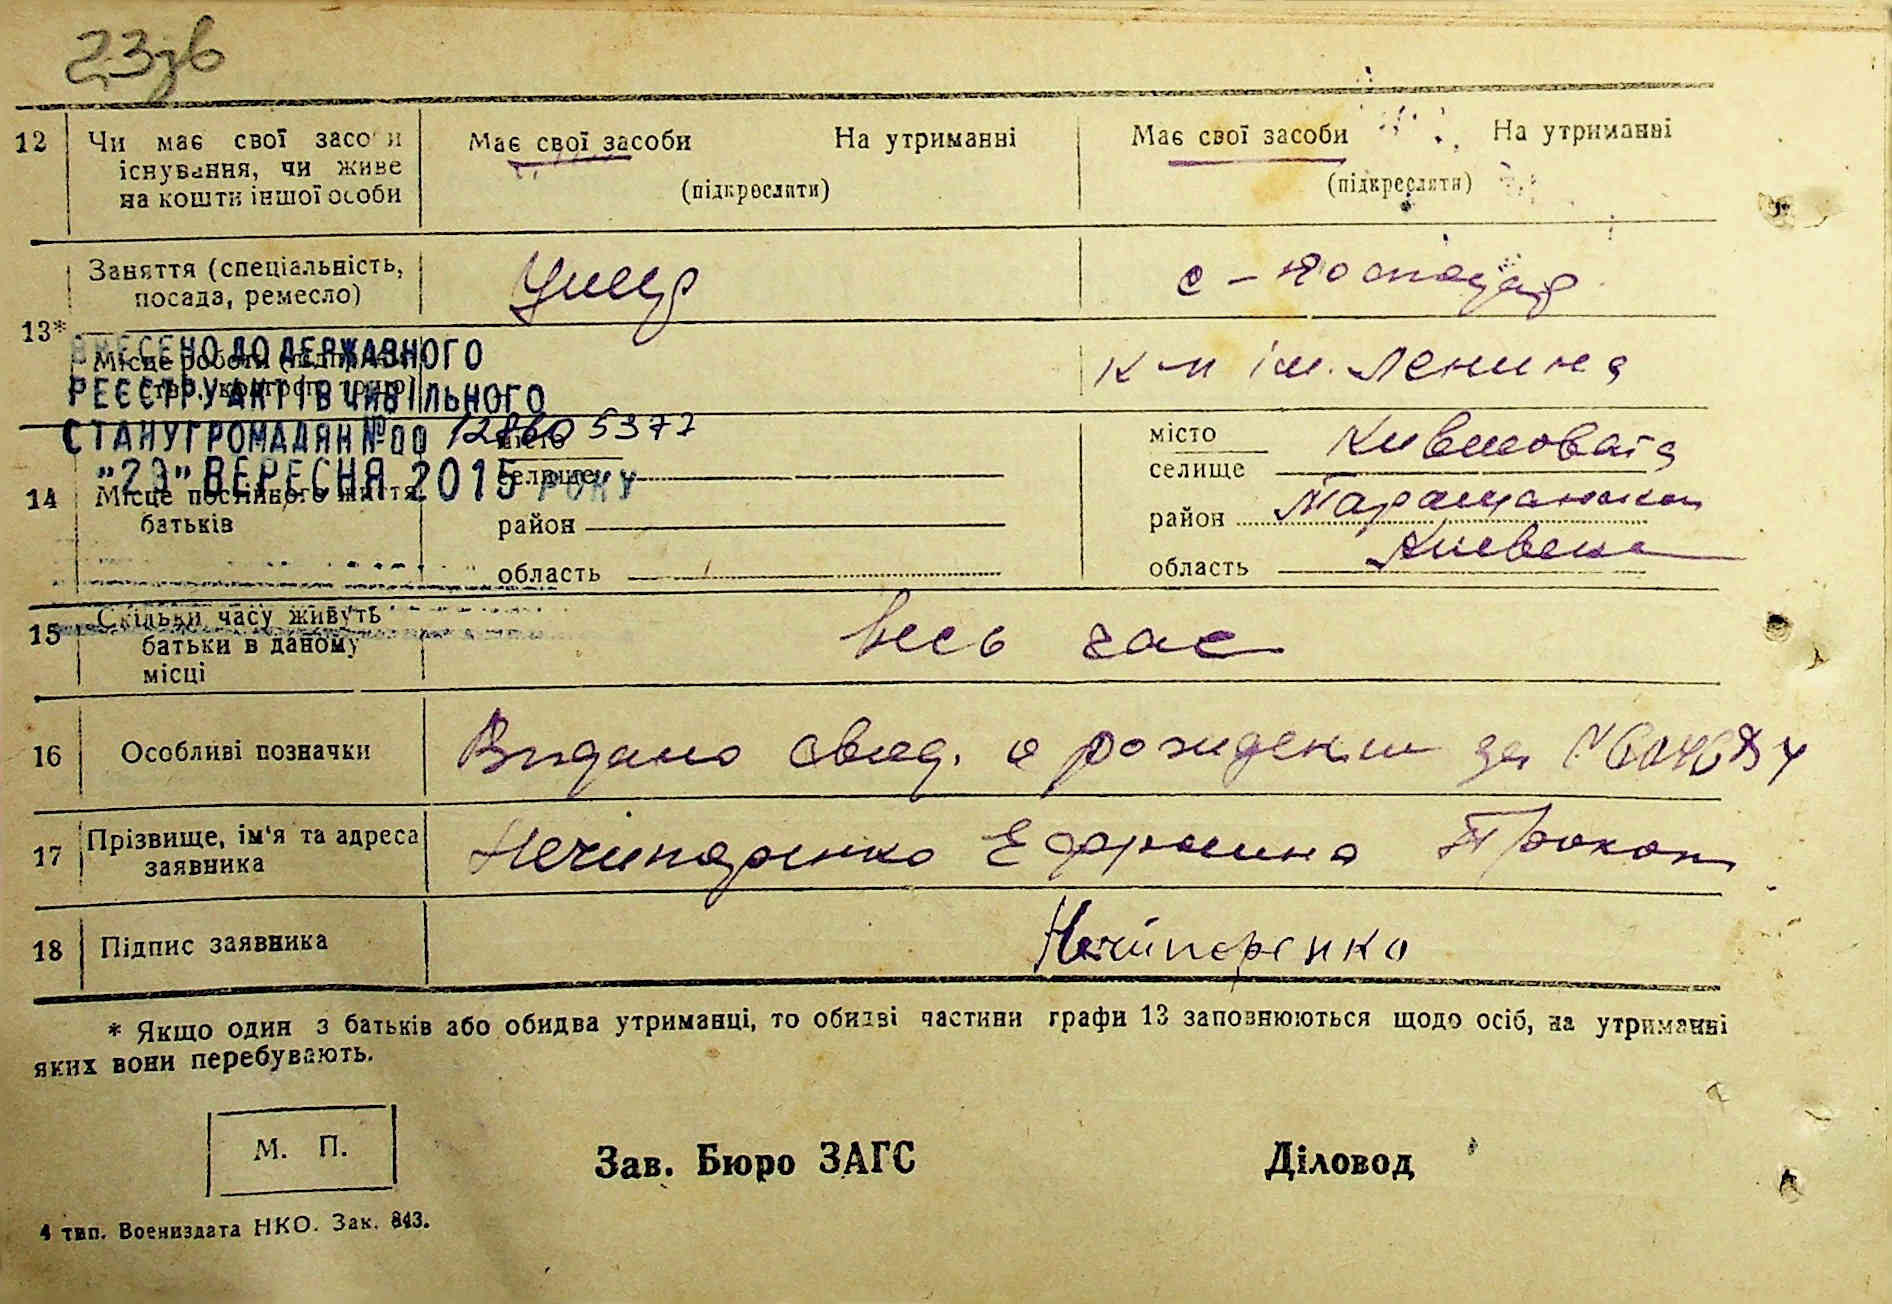 23зв
12 Чи має свої засоби Має свої засоби На утриманні Має свої засоби На утриманні
існування, чи живе
на кошти іншої особи (підкреслити) (підкреслити)
Заняття (спеціальність,
посада, ремесло) с-господар
13*
ВНЕСЕНО ДО ДЕРЖАВНОГО
Місце роботи к-п ім. Ленина
РЕЄСТРУ АКТІВ ЦИВІЛЬНОГО
СТАНУ ГРОМАДЯН № 00 5377
"23" ВЕРЕСНЯ 2015 РОКУ
14 Місце постійного життя місто місто
батьків селище селище Кившовата
район район Таращанська
область область Киевска
15 Скільки часу живуть
батьки в даному весь час
місці
16 Особливі позначки Видано свид. о рождении за
17 Прізвище, ім'я та адреса Нечипоренко Прокоп
заявника
18 Підпис заявника Нечипоренко
* Якщо один з батьків або обидва утриманці, то обидві частини графи 13 заповнюються щодо осіб, на утриманні
яких вони перебувають.
М. П.
Зав. Бюро ЗАГС Діловод
4 тип. Воениздата НКО. Зак. 843.